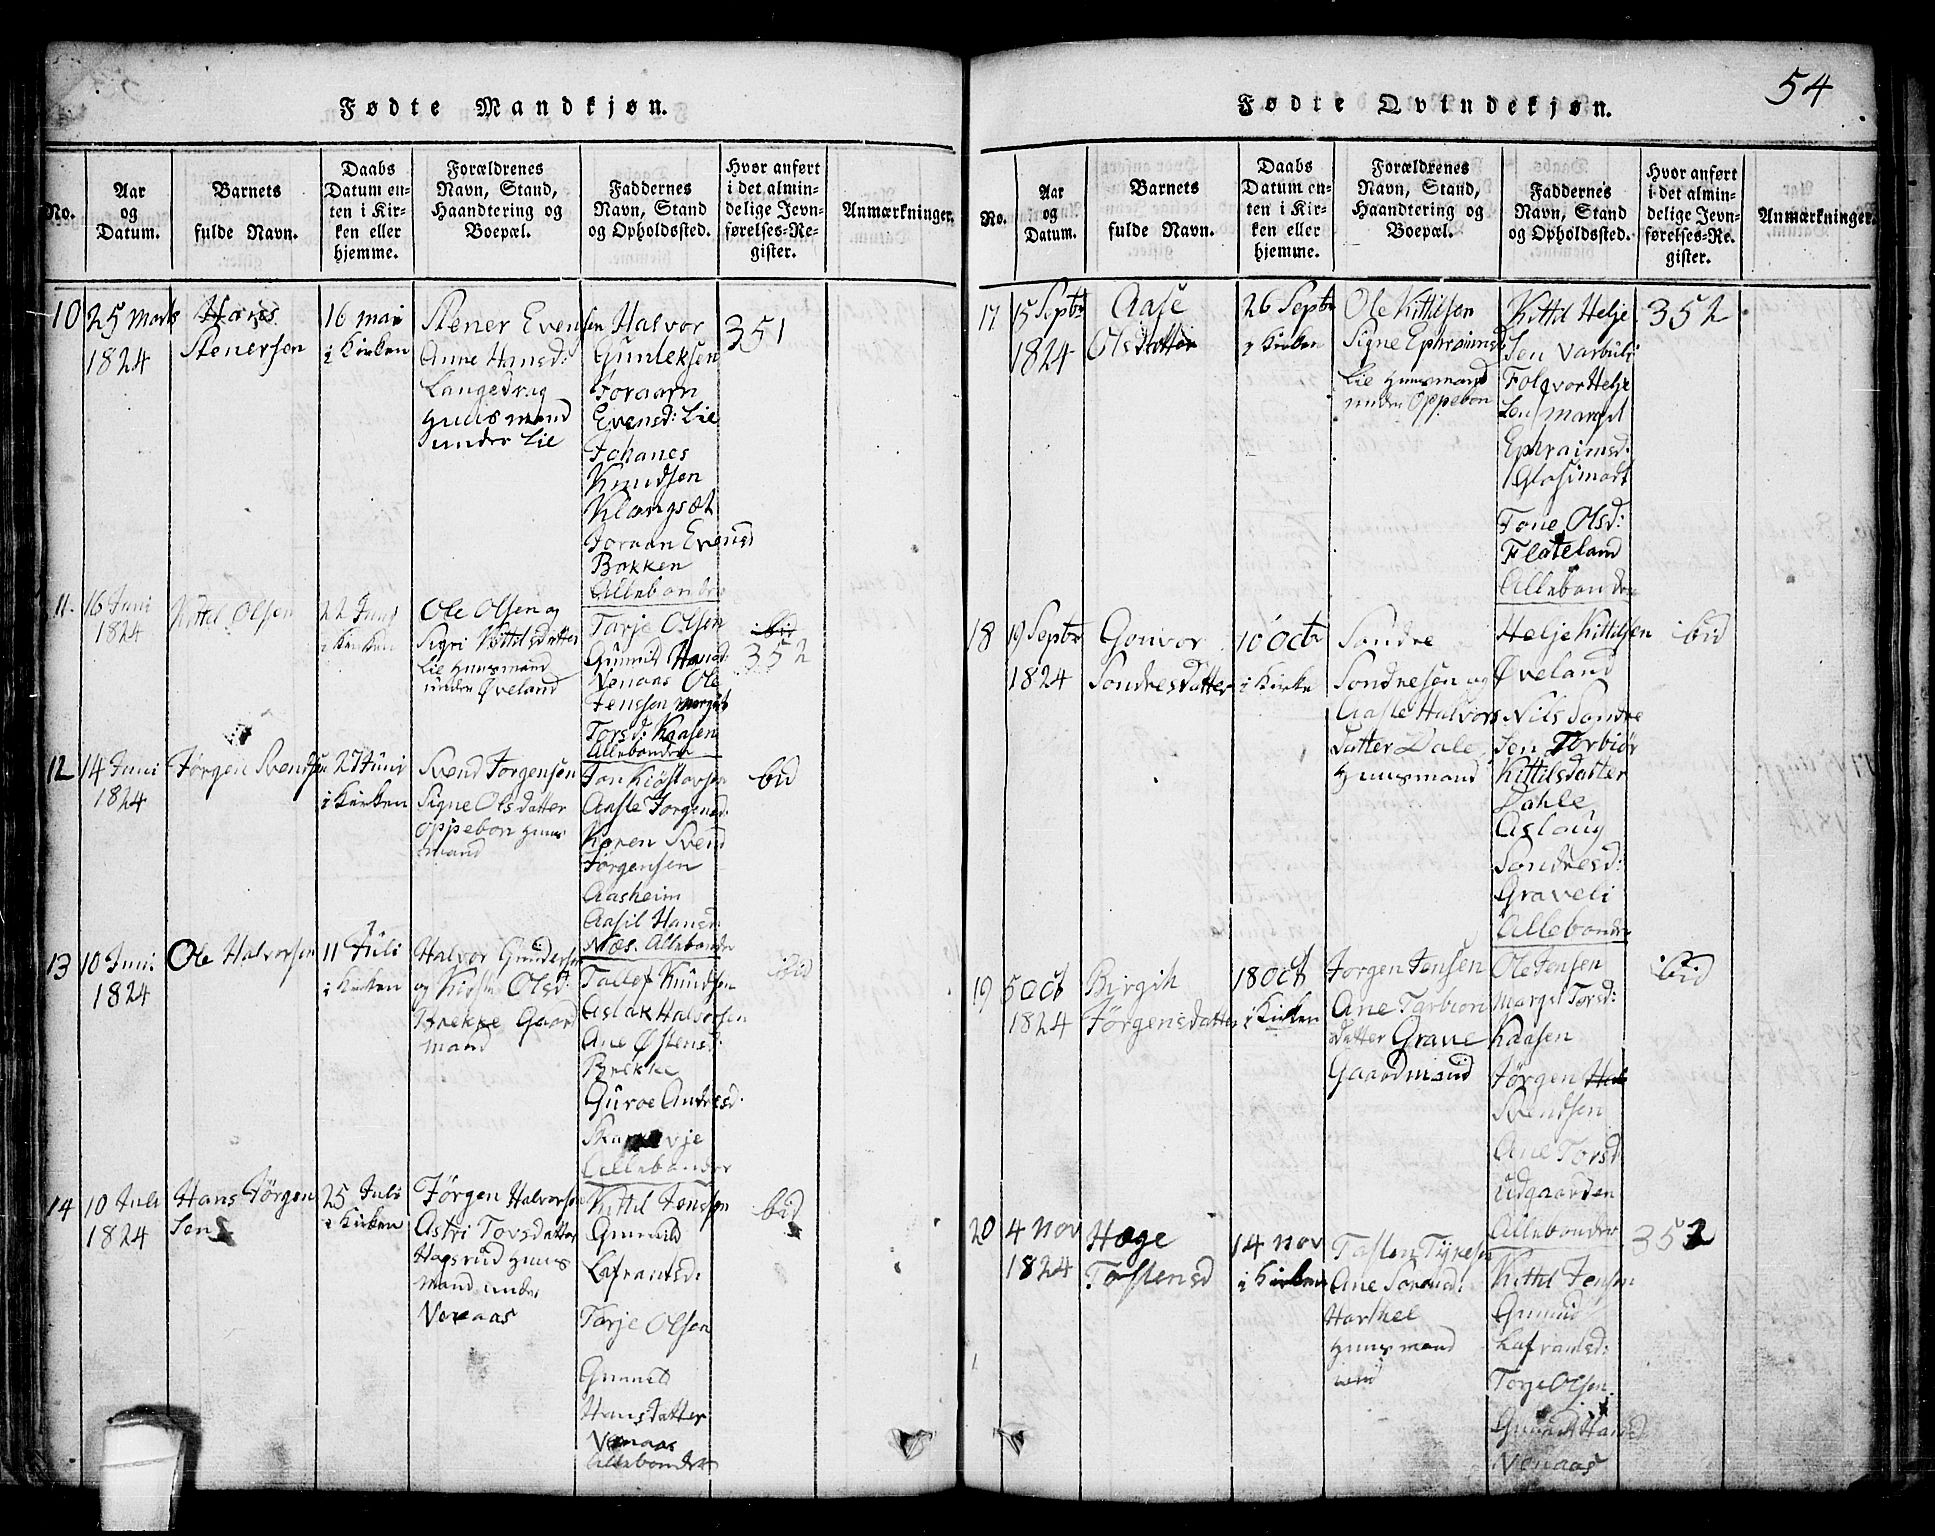 54
Fødte Mandkjøn.
No.
Aar
og
Datum.
Barnets
fulde Navn.
Daabs
Datum en-
ten i Kir-
ken eller
hjemme.
Forældrenes
Navn, Stand,
Haandtering og
Boepæl.
Faddernes
Navn, Stand
og Opholdssted.
Hvor anført
i det almin-
delige Jevn-
førelses-Re-
gister.
Anmærkninger.
10
25 Marts
1824
Hans
Stenersen
16 mai
i Kirken
Stener Evensen
Anne Hansd:
Langedrag
Huusmand
under Lie
Halvor
Gunleksen
Joraarn
Evensd: Lie
Johanes
Knudsen
Klangsæt
Joraan Evensd
Bakken
Allebonder
351
11.
16 Juni
1824
Kittil Olsen
22 Juni
i Kirken
Ole Olsen og
Sigri Kittilsdatter
Lie Huusmand
under Øveland
Tarje Olsen
Gunild Hansd
Venaas Ole
Jenssen Margit
Torsd: Kaasen
Allebonder
ibid
352
12
14 Juni
1824
Jørgen Svendsen
27 Juni
i Kirken
Svend Jorgensen
Signe Olsdatter
Oppebøn Huus
mand
Jon Kiøstovsen
Aasle Jorgensd.
Karen Svend
Jørgensen
Aasheim
Aasil Hansd.
Næs. Allebonder
ibid
13
10 Juni.
1824
Ole Halvorsen
11 Juli
i Kirken
Halvor Gundersen
og Kirstie Olsd:
Brekke Gaard
mand
Tallef Knudsen
Aslak Halvorsen
Ane Østensd:
Brekke
Guroe Andresd.
Allebonder
ibid
14
10 Juli
1824
Hans Jørgen
Sen
25 Juli
i Kirken
Jørgen Halvorsen
Astri Torsdatter
Hagsrud Huus
mand under
Venaas
Kittil Jenssen
Gunuld
Lafrantsd:
Tarje Olsen
Gunnild
Hansdatter
Venaas
Allebonder
ibid
Fødte Qvindekjøn.
No.
Aar
og
Datum.
Barnets
fulde Navn.
Daabs
Datum en-
ten i Kir-
ken eller
hjemme.
Forældrenes
Navn, Stand,
Haandtering og
Boepæl.
Faddernes
Navn, Stand
og Opholdssted.
Hvor anført
i det almin-
delige Jevn-
førelses-Re-
gister.
Anmærkninger.
17
15 Septbr
1824
Aase
Olsdatter
26 Septbr
i Kirken
Ole Kittilsen
Signe Ephraimsd
Lie Huusmand
under Oppebøn
Kittil Helje
Sen Varbuli
Folqvor Helje
Sen Margit
Ephraimsd:
Tone Olsd:
Flateland
Allebonder
352
18
19 Septbr
1824
Gonvor
Sondresdatter
10 Octbr
i Kirke
Sondre
Sondresen og
Aasle Halvors
datter Dale
Huusmand
Helje Kittilsen
Øveland
Nils Sondre
Sen Torbiør
Kittilsdatter
Dahle
Aslaug
Sondresd:
Graveli
Allebonder
ibid
19
5 Oct
1824
Birgit
Jørgensdatter
18 Oct
i Kirken
Jorgen Jensen
Ane Torbion
datter Grave
Gaardmand
Ole Jensen
Margit Torsd:
Kaasen
Jørgen
Svendsen
Ane Torsd
Udgaarden
Allebonder
ibid
20
4 Nov
1824
Hæge
Tostensd
14 Nov
i Kirken
Tosten Tykesen
Ane
Huusmand
Kittil Jensen
Gunuld
Lafrantsd:
Torje Olsen.
Gunild Hansd
Venaas
352